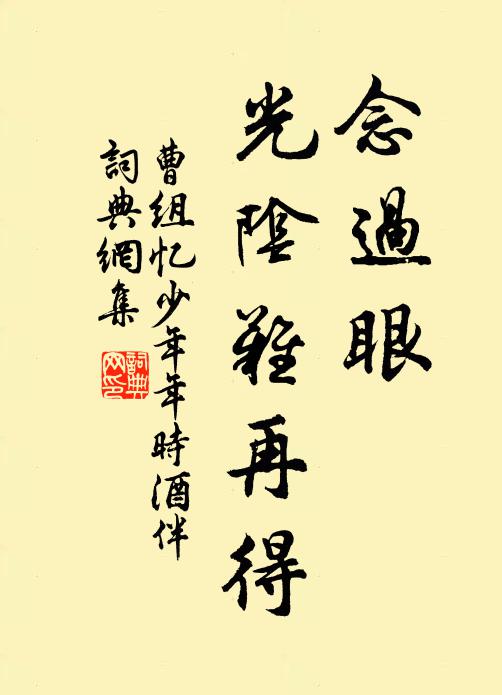 念過眼
光陰難再得
曹组忆少年年時酒伴
詞典網集
詞典网印